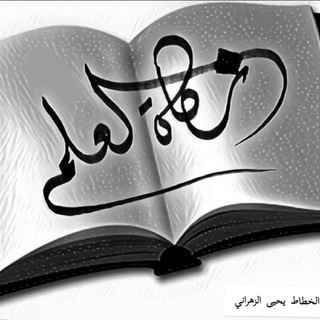 زكاة العلم
الخطاط يحيى الزهراني